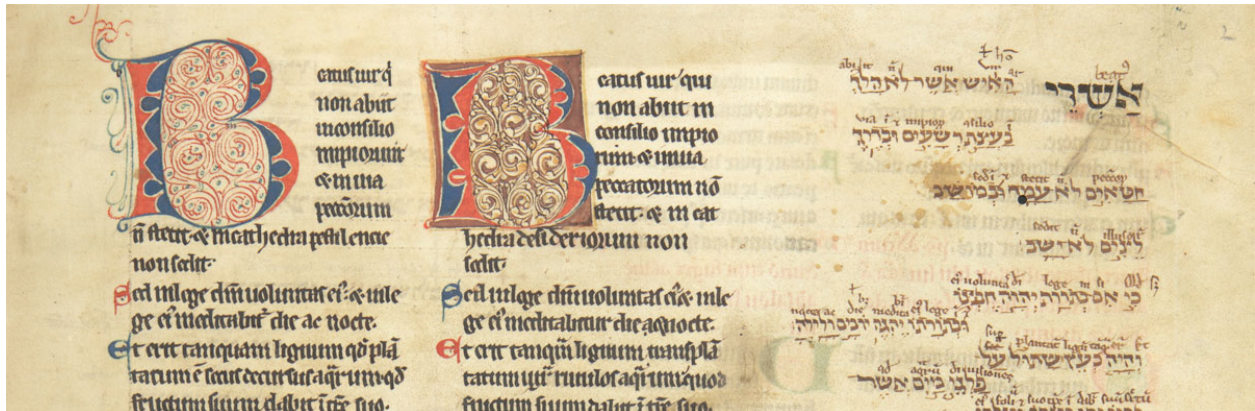 Beatus uir q̄
non abiit
in consilio
impiorum
& in uia
peccōrum
n̄ stetit· & in cathedra pestilencie
non sedit·
Sed in lege dn̄i uoluntas ei᷒· & in le
ge ei᷒ meditabit᷑ die ac nocte·
Et erit tanquam lignum qd̄ plā
tatum ē secus decursus aq̄rum· qd̄
fructum suum dabit ī tp̄e suo·
Beatus uir qui
non abiit in
consilio impio
rum & in uia
peccatorum nō
stetit· & in cat
hedra desideriorum non
sedit·
Sed in lege dn̄i uoluntas ei᷒ & in le
ge ei᷒ meditabitur die ac nocte·
Et erit tanq̄m lignum transplā
tatum iuxta riuulos aq̄rum· quod
fructum suum dabit ī tp̄e suo·
2
beat᷒
אשרי האיש אשר לא הלך
בעצת רשעים ובדרך
חטאים לא עמד ובמושב
לצים לא ישב
כי אם בתורת יהוה חפצו
ובתורתו יהגה יומם ולילה
והיה כעץ שתול על
פלגי מים אשר